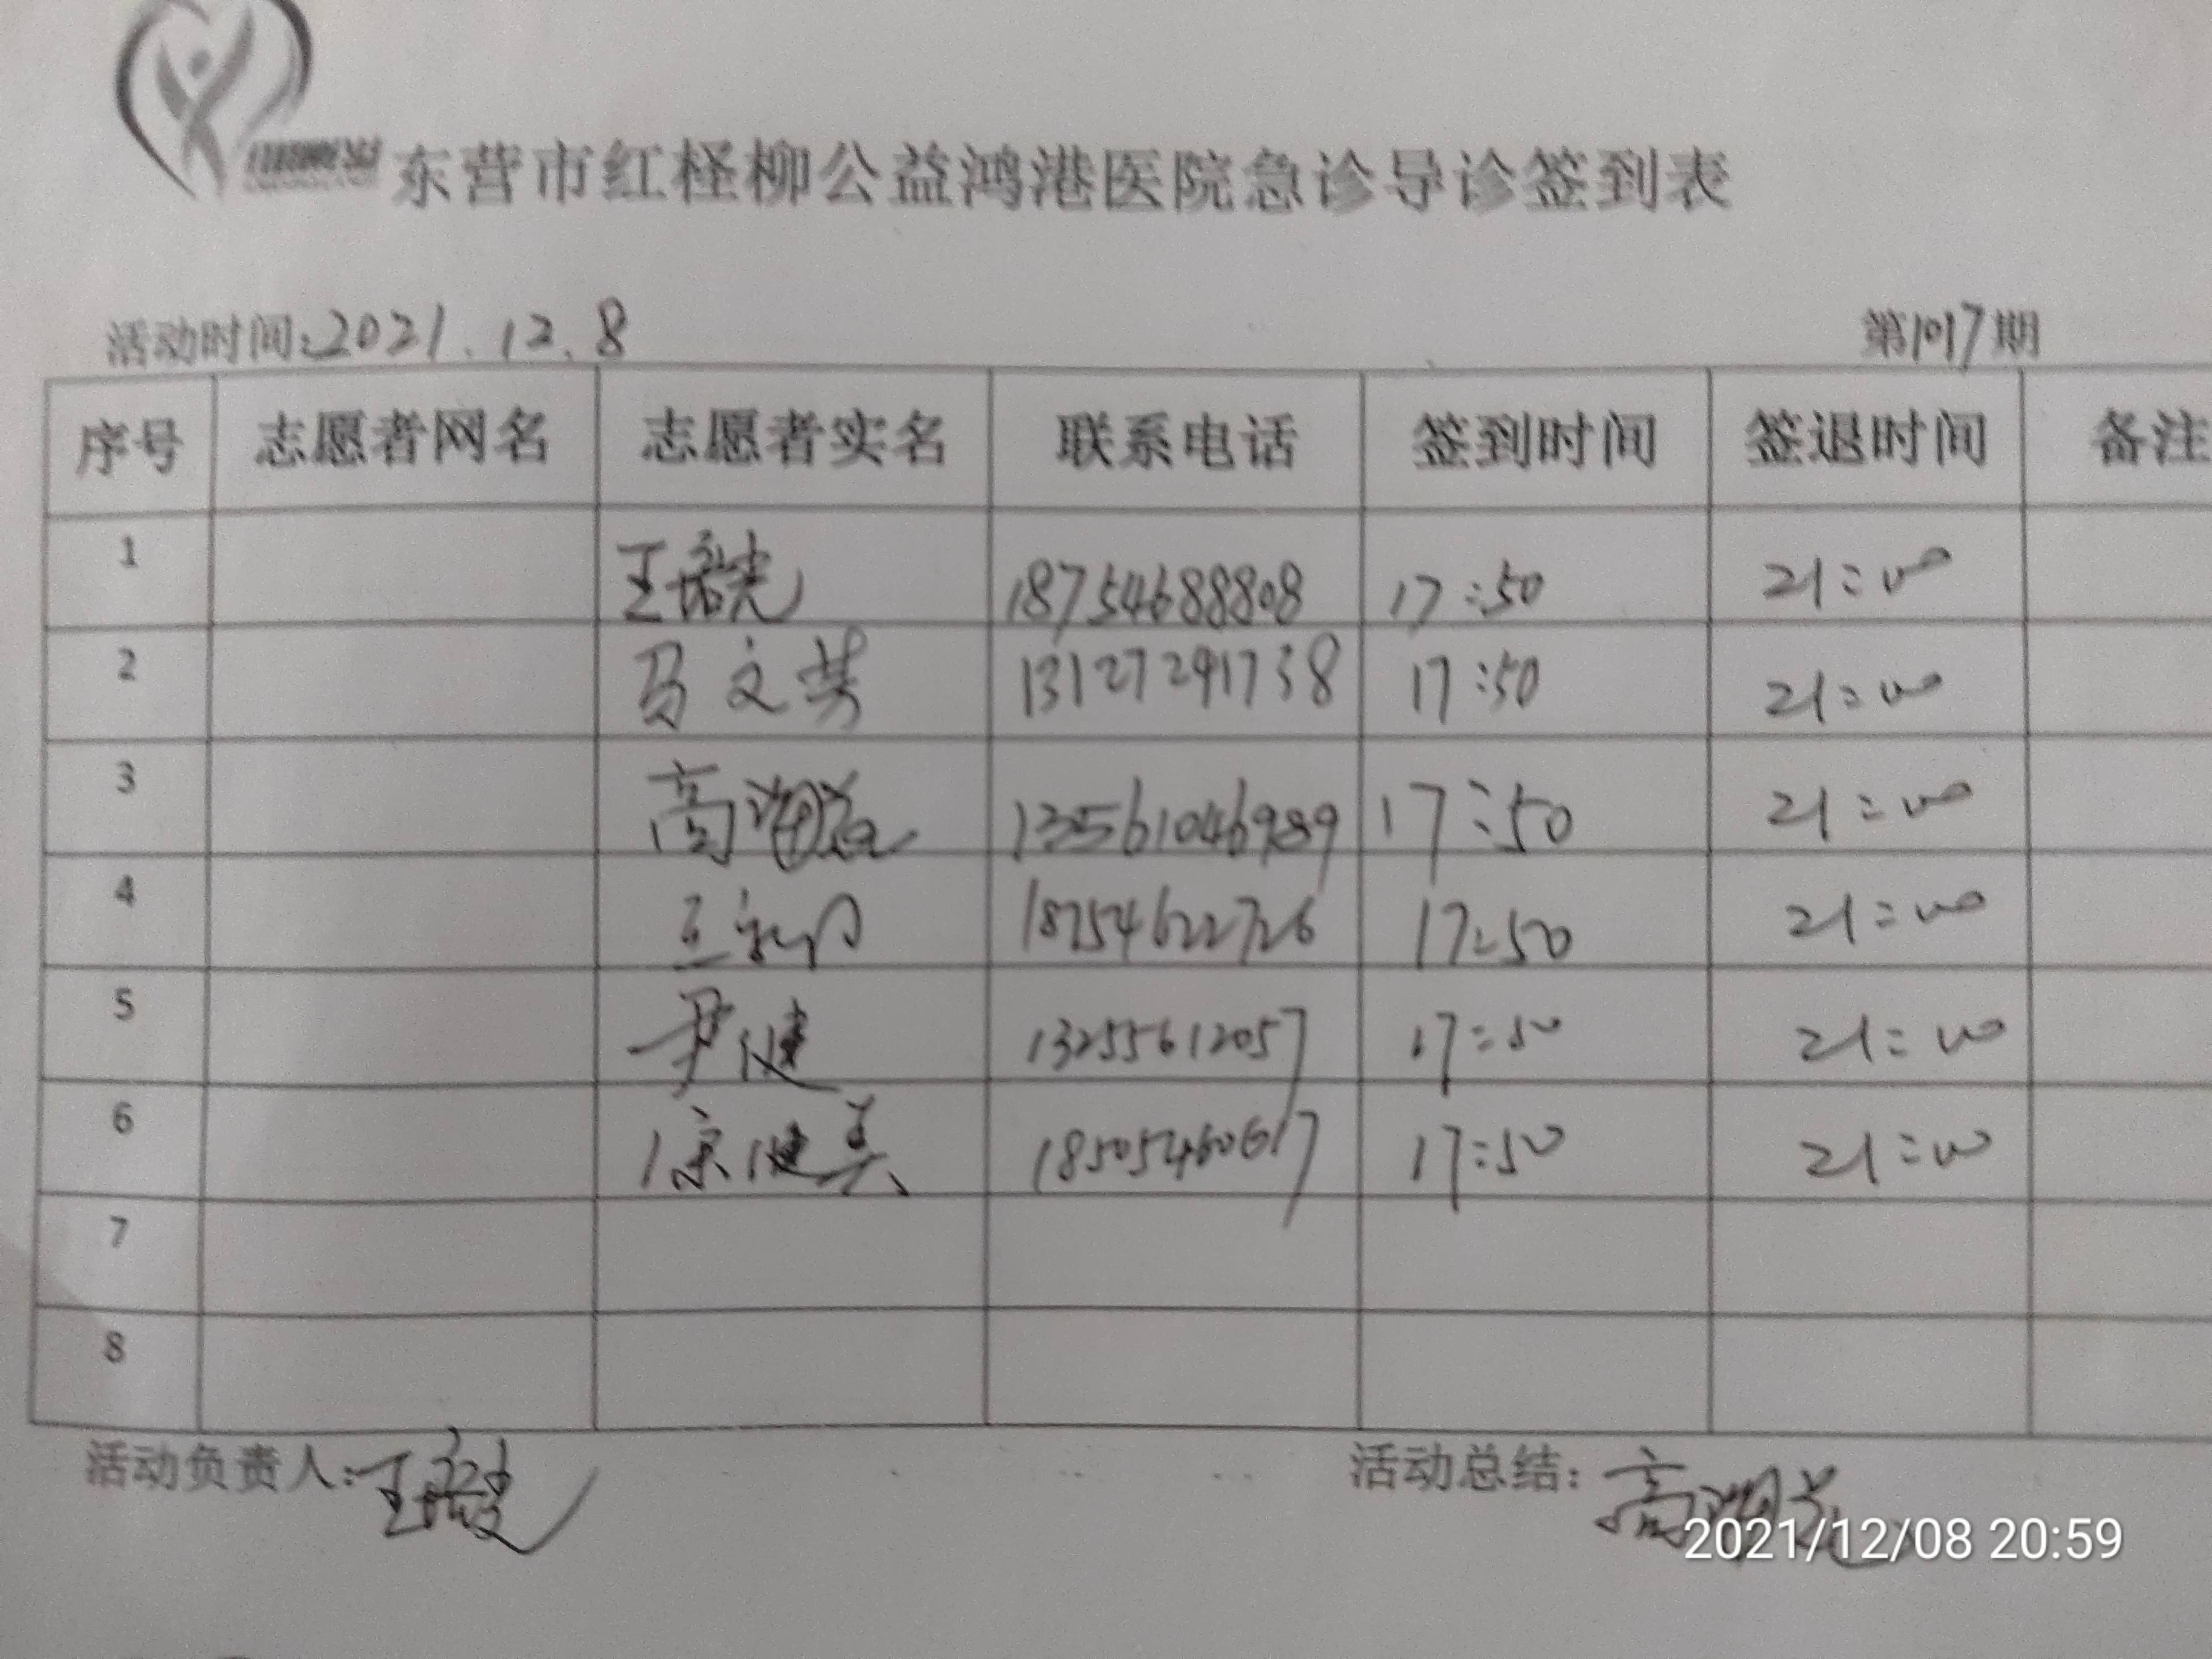 东营市红柽柳公益鸿港医院急诊导诊签到表
活动时间:2021.12.8 第1017期
序号 志愿者网名 志愿者实名 联系电话 签到时间 签退时间 备注
1 18754688808 17:50 21:00
2 马文芳 13127291738 17:50 21:00
3 13561046989 17:50 21:00
4 18754622726 17:50 21:00
5 尹健 13255612057 17:50 21:00
6 18505460617 17:50 21:00
7
8
活动负责人: 活动总结:
2021/12/08 20:59